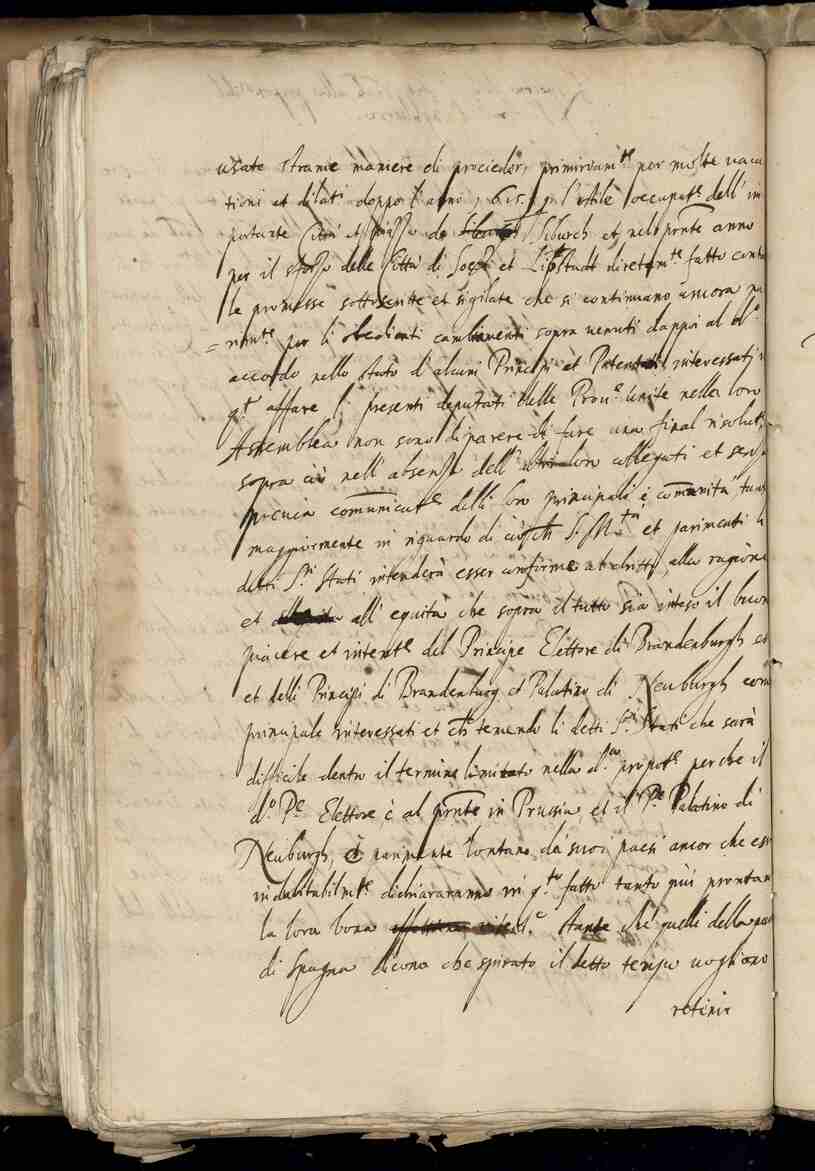 usate strane maniere di procieder, primieram.te per molte uaca
tioni et dilati doppo l'anno 1615. p l'ostile occupat.e dell' im
portante Città et piazza de Siburch et nel pnte anno
per il sforzo delle Città di Soest et Lipstadt diretam.te fatto contra
le promesse sottoscritte et sigilate che si continuano ancora
per li cambiamenti sopra uenuti dappoi al d.o
accordo nello stato d'alcuni Principi et Potentati interessati
q.to affare li presenti deputati delle Prou.e Unite nella loro
Assemblea non sono di parere di fare una final risolut.e
sopra ciò nell' absenza dell' loro collegati et senza
preuia comunicat.e delli loro principali è comunità
maggiormente in riguardo di ciò ch S. M.tà et parimenti li
detti S.ri Stati intenderà esser conforme al dritto, alla ragione
et all' equità che sopra il tutto sia inteso il buon
piacere et intent.e del Principe Elettore di Brandenburgh
et delli Principi di Brandenburg et Palatino di Neuburgh come
principale interessati et ch temendo li detti S.ri Stati che sarà
difficile dentro il termine limitato nella d.a propost.e perche il
d.o P.e Elettore è al pnte in Prussia, et il P.e Palatino di
Neuburgh, è lontano da suoi paesi ancor che essi
indubitabilm.te dichiararanno in q.to fatto tanto più prontam
la lora bona intent.e stante che quelli della parte
di Spagna dicono che spirato il detto tempo uogliono
retinir